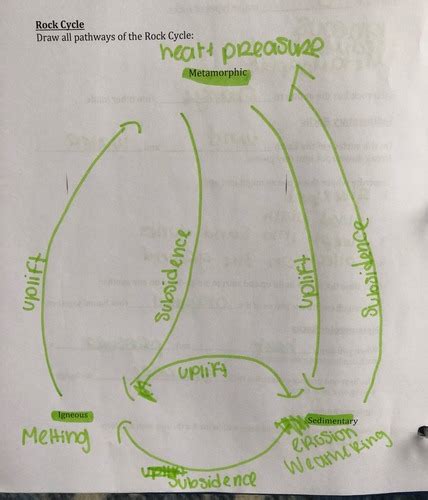 Rock Cycle
Draw all pathways of the Rock Cycle:
heart preasure
Metamorphic
uplift
Subsidence
uplift
Subsidence
uplift
Igneous
Sedimentary
Melting
erosion
Weathering
Subsidence